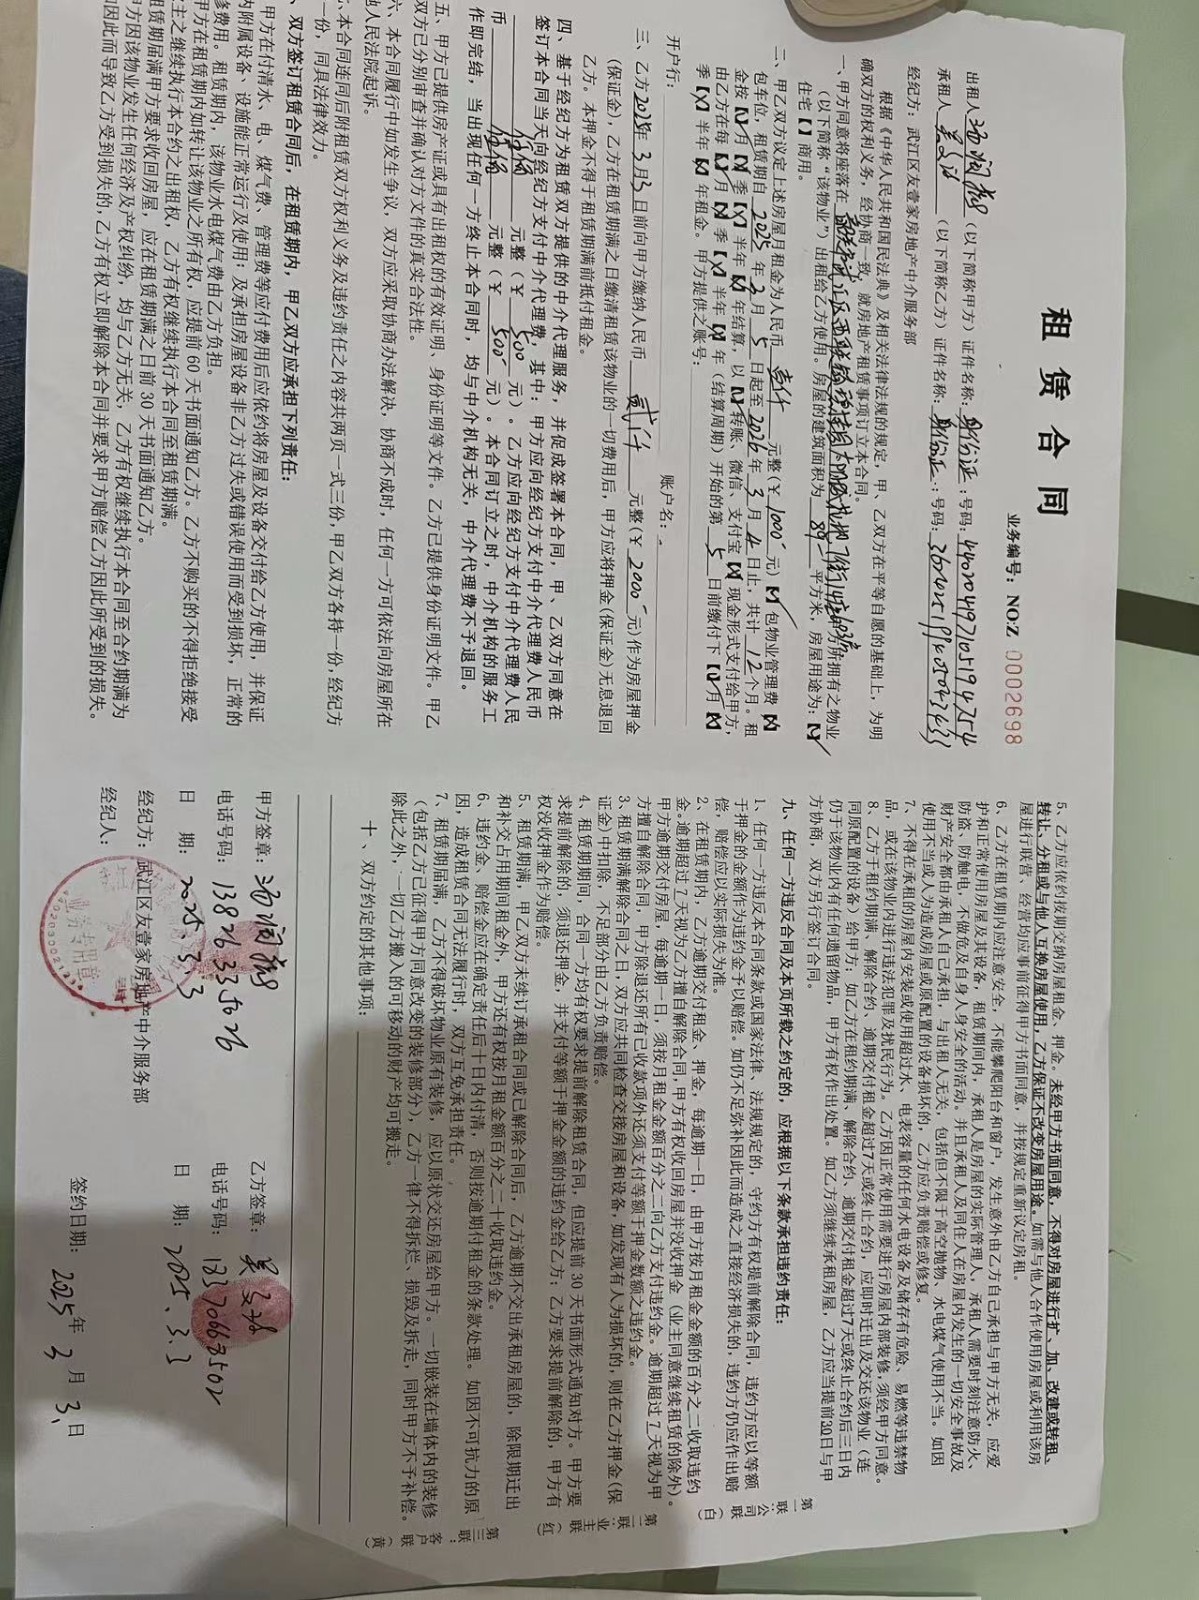 租赁合同
业务编号：NO:Z 0002698
出租人（以下简称甲方）证件名称：身份证：号码：
承租人（以下简称乙方）证件名称：身份证：号码：
经纪方：武江区友壹家房地产中介服务部
根据《中华人民共和国民法典》及相关法律法规的规定，甲、乙双方在平等自愿的基础上，为明
确双方的权利义务，经协商一致，就房地产租赁事项订立本合同。
一、甲方同意将座落在
甲方所拥有之物业
（以下简称“该物业”）出租给乙方使用。房屋的建筑面积为 89 平方米，房屋用途为：【✓】
住宅【 】商用。
二、甲乙双方议定上述房屋月租金为人民币 壹仟 元整（￥1000 元）包物业管理费
包车位，租赁期自 2025 年 3 月 5 日起至 2026 年 3 月 4 日止，共计 12 个月。租
金按 月 季 半年 年结算，以 转账、微信、支付宝 现金形式支付给甲方，
由乙方在每 月 季 半年 年（结算周期）开始的第 5 日前缴付下 月
季 半年 年租金。甲方提供之账号：
开户行： 账户名：
三、乙方 2025年 3月3 日前向甲方缴纳人民币 贰仟 元整（￥2000 元)作为房屋押金
(保证金)，乙方在租赁期满之日缴清租赁该物业的一切费用后，甲方应将押金(保证金)无息退回
乙方。本押金不得于租赁期满前抵付租金。
四、基于经纪方为租赁双方提供的中介代理服务，并促成签署本合同，甲、乙双方同意在
签订本合同当天向经纪方支付中介代理费，其中：甲方应向经纪方支付中介代理费人民币
伍佰 元整（￥500 元）。乙方应向经纪方支付中介代理费人民
币 伍佰 元整（￥500 元）。本合同订立之时，中介机构的服务工
作即完结，当出现任何一方终止本合同时，均与中介机构无关，中介代理费不予退回。
五、甲方已提供房产证或具有出租权的有效证明、身份证明等文件。乙方已提供身份证明文件。甲乙
双方已分别审查并确认对方文件的真实合法性。
六、本合同履行中如发生争议，双方应采取协商办法解决，协商不成时，任何一方可依法向房屋所在
地人民法院起诉。
本合同连同后附租赁双方权利义务及违约责任之内容共两页一式三份，甲乙双方各持一份，经纪方
一份，同具法律效力。
、双方签订租赁合同后，在租赁期内，甲乙双方应承担下列责任：
甲方在付清水、电、煤气费、管理费等应付费用后应依约将房屋及设备交付给乙方使用，并保证
内附属设备、设施能正常运行及使用；及承担房屋设备非乙方过失或错误使用而受到损坏，正常的
修费用。租赁期内，该物业水电煤气费由乙方负担。
甲方在租赁期内如转让该物业之所有权，应提前 60 天书面通知乙方。乙方不购买的不得拒绝接受
主之继续执行本合约之出租权，乙方有权继续执行本合同至租赁期满。
租赁期届满甲方要求收回房屋，应在租赁期满之日前 30 天书面通知乙方。
甲方因该物业发生任何经济及产权纠纷，均与乙方无关，乙方有权继续执行本合同至合约期满为
如因此而导致乙方受到损失的，乙方有权立即解除本合同并要求甲方赔偿乙方因此所受到的损失。
5、乙方应依约按期交纳房屋租金、押金。未经甲方书面同意，不得对房屋进行扩、加、改建或转租、
转让、分租或与他人互换房屋使用，乙方保证不改变房屋用途。如需与他人合作使用房屋或利用该房
屋进行联营、经营均应事前征得甲方书面同意，并按规定重新议定房租。
6、乙方在租赁期内应注意安全，不能攀爬阳台和窗户，发生意外由乙方自己承担与甲方无关，应爱
护和正常使用房屋及其设备，租赁期间内，承租人是房屋的实际管理人，承租人需要时刻注意防火、
防盗、防触电，不做危及自身人身安全的活动。并且承租人及同住人在房屋内发生的一切安全事故及
财产安全都由承租人自己承担，与出租人无关，包括但不限于高空抛物，水电煤气使用不当。如因
使用不当或人为造成房屋或原配置的设备损坏的，乙方应负责赔偿或修复。
7、不得在承租的房屋内安装或使用超过水、电表容量的任何水电设备及储存有危险、易燃等违禁物
品，或在该物业内进行违法犯罪及扰民行为。乙方因正常使用需要进行房屋内部装修,须经甲方同意。
8、乙方于租约期满、解除合约、逾期交付租金超过7天或终止合约后三日内
同原配置的设备）给甲方；如乙方在租约期满、解除合约、逾期交付租金超过7天或终止合约，应即时迁出及交还该物业（连
仍于该物业内有任何遗留物品，甲方有权作出处置。如乙方须继续承租房屋，乙方应当提前30日与甲
方协商，双方另行签订合同。
九、任何一方违反合同及本页所载之约定的，应根据以下条款承担违约责任：
1、任何一方违反本合同条款或国家法律、法规规定的，守约方有权提前解除合同，违约方应以等额
于押金的金额作为违约金予以赔偿。如仍不足弥补因此而造成之直接经济损失的，违约方仍应作出赔
偿，赔偿应以实际损失为准。
2、在租赁期内，乙方逾期交付租金、押金，每逾期一日，由甲方按月租金金额的百分之二收取违约
金。逾期超过 7 天视为乙方擅自解除合同，甲方有权收回房屋并没收押金（业主同意继续租赁的除外）。
甲方逾期交付房屋，每逾期一日，须按月租金金额百分之二向乙方支付违约金。逾期超过 7 天视为甲
方擅自解除合同，甲方除退还所有已收款项外还须支付等额于押金数额之违约金。
3、租赁期满解除合同之日，双方应共同检查交接房屋和设备，如发现有人为损坏的，则在乙方押金(保
证金)中扣除，不足部分由乙方负责赔偿。
4、租赁期期间，合同一方均有权要求提前解除租赁合同，但应提前 30 天书面形式通知对方。甲方要
求提前解除的，须退还押金，并支付等额于押金金额的违约金给乙方；乙方要求提前解除的，甲方有
权没收押金作为赔偿。
5、租赁期满，甲乙双方未续订承租合同或已解除合同后，乙方逾期不交出承租房屋的，除限期迁出
和补交占用期间租金外，甲方还有权按月租金额百分之二十收取违约金。
6、违约金、赔偿金应在确定责任后十日内付清，否则按逾期付租金的条款处理。如因不可抗力的原
因，造成租赁合同无法履行时，双方互免承担责任。
7、租赁期届满，乙方不得破坏物业原有装修，应以原状交还房屋给甲方。一切嵌装在墙体内的装修
（包括乙方已征得甲方同意改变的装修部分），乙方一律不得拆烂、损毁及拆走，同时甲方不予补偿。
除此之外，一切乙方搬入的可移动的财产均可搬走。
十、双方约定的其他事项：
甲方签章： 乙方签章：
电话号码： 13826335626 电话号码： 18370663502
日 期： 2025.3.3 日 期： 2025.3.3
经纪方：武江区友壹家房地产中介服务部
经纪人： 签约日期： 2025年 3 月 3 日
业务专用章
第一联：公司联（白）
第二联：业主联（红）
第三联：客户联（黄）